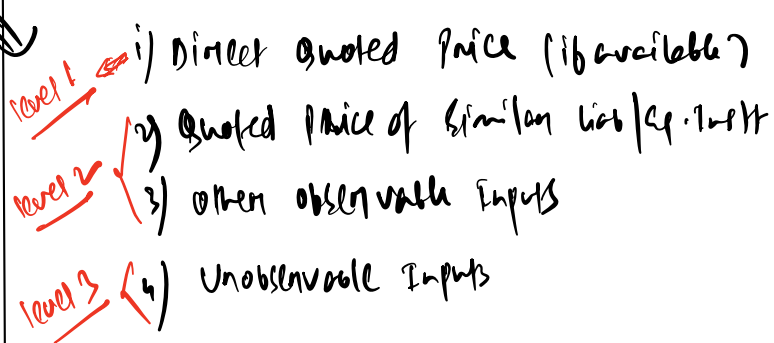 level 1 i) Direct Quoted Price (if available)
2) Quoted Price of Similar Liab/Eq. Instt
level 2
3) other observable Inputs
level 3 4) Unobservable Inputs